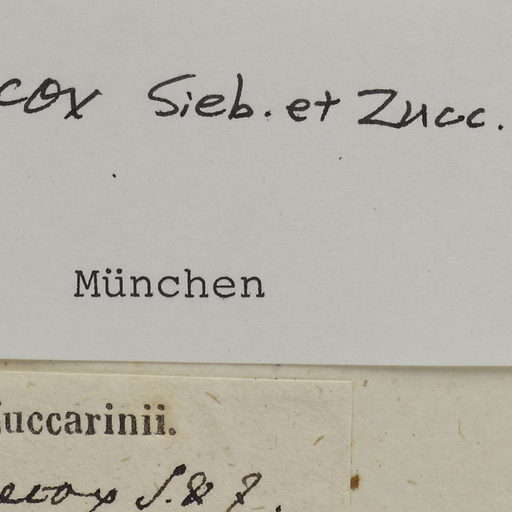 cox Sieb. et Zucc.
München
uccarinii.
ecox S. & Z.